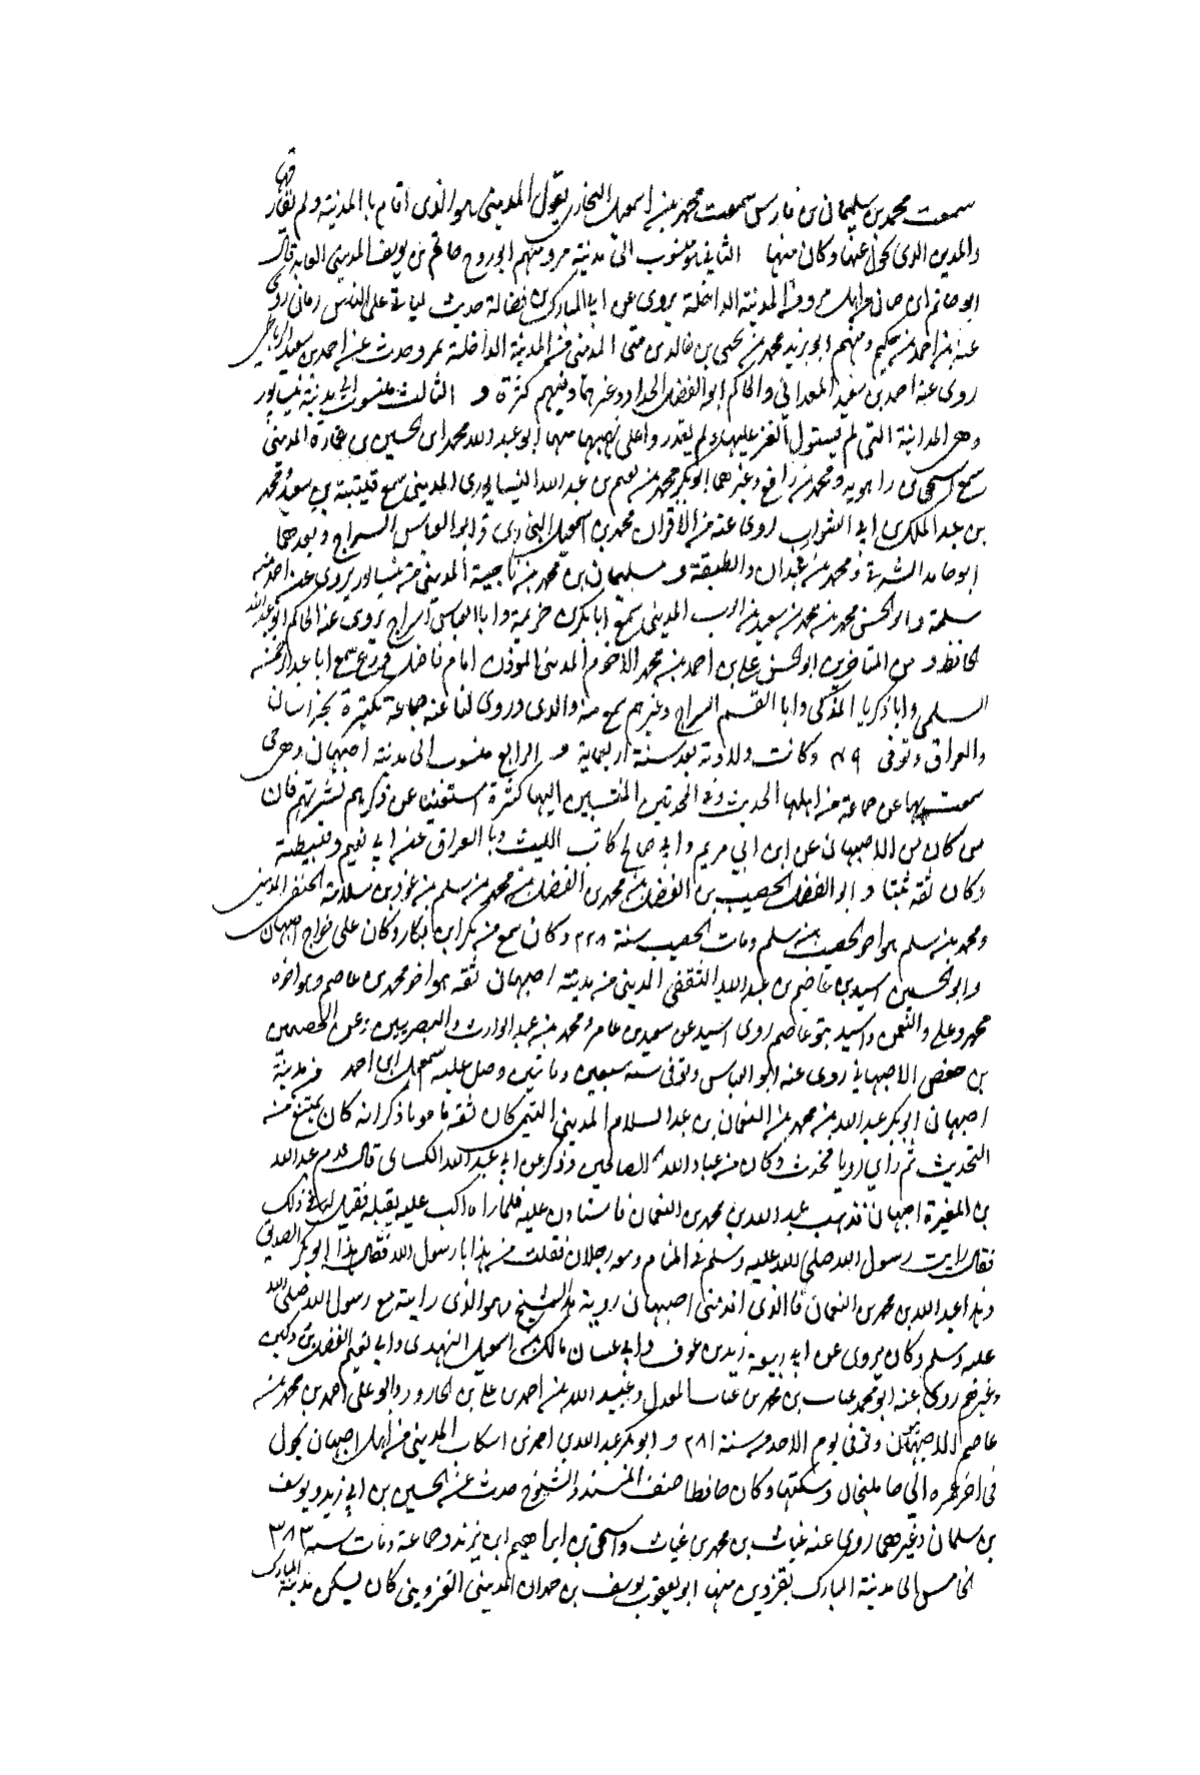 سمعت محمد بن سليمان بن فارس سمعت محمد بن اسمعيل البخاري يقول المديني هو الذي اقام با المدينة ولم يفارقها
والمدني الذي تحول عنها وكان منها الثاني منسوب الى مدينة مرو منهم ابو روح حاتم بن يوسف المديني العابد قال
ابو حاتم ابن حبان من اهل مرو من المدينة الداخلة يروي عن ابن المبارك بن فضالة حديث لياتي على الناس زمان روى
عنه احمد بن حكيم ومنهم ابو يزيد محمد بن يحيى بن خالد بن متى المديني من المدينة الداخلة بمرو حدث عن احمد بن سعيد الرباطي
روى عنه احمد بن سعيد المعداني والحاكم ابو الفضل الحدادي وغيرهما وفيهم كثرة و الثالث منسوب الى مدينة نيسابور
وهى المدينة التي لم يستول الغز عليها ولم يقدروا على نهبها منها ابو عبد الله محمد ابن الحسين بن عمارة المديني
سمع اسحق بن راهويه ومحمد بن رافع وغيرهما ابو بكر محمد بن نعيم بن عبد الله النيسابوري المديني سمع قتيبة بن سعيد ومحمد
بن عبد الملك بن ابي الشوارب روى عنه من الاقران محمد بن اسمعيل البخاري وابو العباس السراج وبعدهما
ابو حامد الشرقي ومحمد بن عبدان والطبقة و سليمان بن محمد بن ناجية المديني من نيسابور يروي عن احمد بن
سلمة و ابو الحسن محمد بن محمد بن سعيد بن المديني سمع ابا بكر بن خزيمة وابا العباس السراج يروي عنه الحاكم ابو عبد الله
الحافظ و من المتاخرين ابو الحسن علي بن احمد بن محمد الاخرم المديني الموذن امام فاضل ورع سمع ابا عبد الرحمن
السلمي وابا زكريا المزكي وابا القسم السراج وغيرهم سمع منه والدي وروى لنا عنه جماعة كثيرة بخراسان
والعراق وتوفى وكانت ولادته بعد سنة اربعماية و الرابع منسوب الى مدينة اصبهان وهى
سمعت بها عن جماعة من اهلها الحديث وفي المحدثين المنتسبين اليها كثرة استغنينا عن ذكرهم لشهرتهم فان
من كان من الاصبهان عن ابن ابي مريم وابي صالح كاتب الليث وبا العراق عن ابي نعيم وقبيصة
وكان ثقة ثبتا و ابو الفضل الخصيب بن الفضل بن محمد بن الفضل بن محمد بن سلم بن عوذ بن سلامة الحنفي المديني
ومحمد بن سلم هو اخو الخصيب بن سلم ومات الخصيب سنة ٢٢٨ وكان سمع من بكر ابن بكار وكان على خراج اصبهان
وابو الحسين اسيد بن عاصم بن عبد الله الثقفي المديني من مدينة اصبهان ثقة هو اخو محمد بن عاصم وهو اخوه
محمد وعلي والنعمن واسيد بنو عاصم روى اسيد عن سعيد بن عامر ومحمد بن عبد الوارث والبصريين وعن الحسين
بن حفص الاصبهاني روى عنه ابو العباس وتوفى سنة سبعين وماتين وصلى عليه اسمعيل ابن احمد من مدينة
اصبهان ابو بكر عبد الله بن محمد بن النعمان بن عبد السلام المديني التيمي كان ثقة مامونا ذكر انه كان يمتنع من
التحديث ثم راي رويا فحدث وكان من عباد الله الصالحين وذكر عن ابي عبد الله الكساي قال قدم عبد الله
بن المغيرة اصبهان فذهب عبد الله بن محمد بن النعمان فاستاذن عليه فلما راه اكب عليه يقبله فقيل له في ذلك
فقال رايت رسول الله صلى الله عليه وسلم في المنام ومعه رجلان فقلت من هذا يا رسول الله فقال هذا ابو بكر الصديق
وهذا عبد الله بن محمد بن النعمان فا الذي اقدمني اصبهان روية هذا الشيخ وهو الذي رايته مع رسول الله صلى الله
عليه وسلم وكان يروي عن ابي ربيعة زيد بن عوف وابي غسان مالك بن اسمعيل النهدي وابي نعيم الفضل بن دكين
وغيرهم روى عنه ابو محمد عتاب بن محمد بن عتاب المعدل وعبيد الله بن احمد بن علي بن الجارود وابو علي احمد بن محمد بن
عاصم الاصبهانيين وتوفى يوم الاحد من سنة ٢٨١ و ابو بكر عبد الله بن احمد بن اسكاب المديني من اهل اصبهان تحول
في اخر عمره الي خا ملنجان وسكنها وكان حافظا صنف المسند والشيوخ حدث عن الحسين بن ابي زيد ويوسف
بن سلمان وغيرهما روى عنه غياث بن محمد بن غياث واسحق بن ابراهيم ابن يزيد وجماعة ومات سنة ٣٨٣
الخامس الى مدينة المبارك بقزوين منها ابو يعقوب يوسف بن حمدان المديني القزويني كان يسكن مدينة المبارك